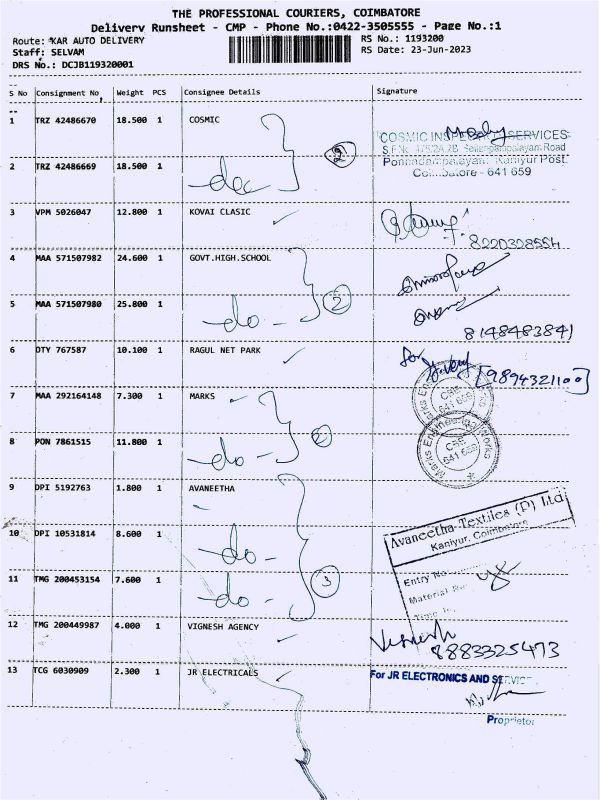 THE PROFESSIONAL COURIERS, COIMBATORE
Delivery Runsheet - CMP - Phone No.:0422-3505555 - Page No.:1
Route: KAR AUTO DELIVERY RS No.: 1193200
Staff: SELVAM RS Date: 23-Jun-2023
DRS No.: DCJB119320001
S No Consignment No Weight PCS Consignee Details Signature
1 TRZ 42486670 18.500 1 COSMIC
COSMIC INSPECTION SERVICES
Road
2 TRZ 42486669 18.500 1 Kaniyur Post
Coimbatore - 641 659
3 VPM 5026047 12.800 1 KOVAI CLASIC
8220308554
4 MAA 571507982 24.600 1 GOVT.HIGH.SCHOOL
5 MAA 571507980 25.800 1 2
-do-
8148483841
6 DTY 767587 10.100 1 RAGUL NET PARK for
[9894321100]
7 MAA 292164148 7.300 1 MARKS
Marks Engineering Works
CBE
641 659
8 PON 7861515 11.800 1 2
-do-
Marks Engineering Works
CBE
641 659
9 DPI 5192763 1.800 1 AVANEETHA
Avaneetha Textiles (P) ltd
Kaniyur, Coimbatore
10 DPI 10531814 8.600 1 -do-
Entry No
11 TMG 200453154 7.600 1 -do- 3
Material
12 TMG 200449987 4.000 1 VIGNESH AGENCY
Vignesh
8883325473
13 TCG 6030909 2.300 1 JR ELECTRICALS
For JR ELECTRONICS AND SERVICE
Proprietor